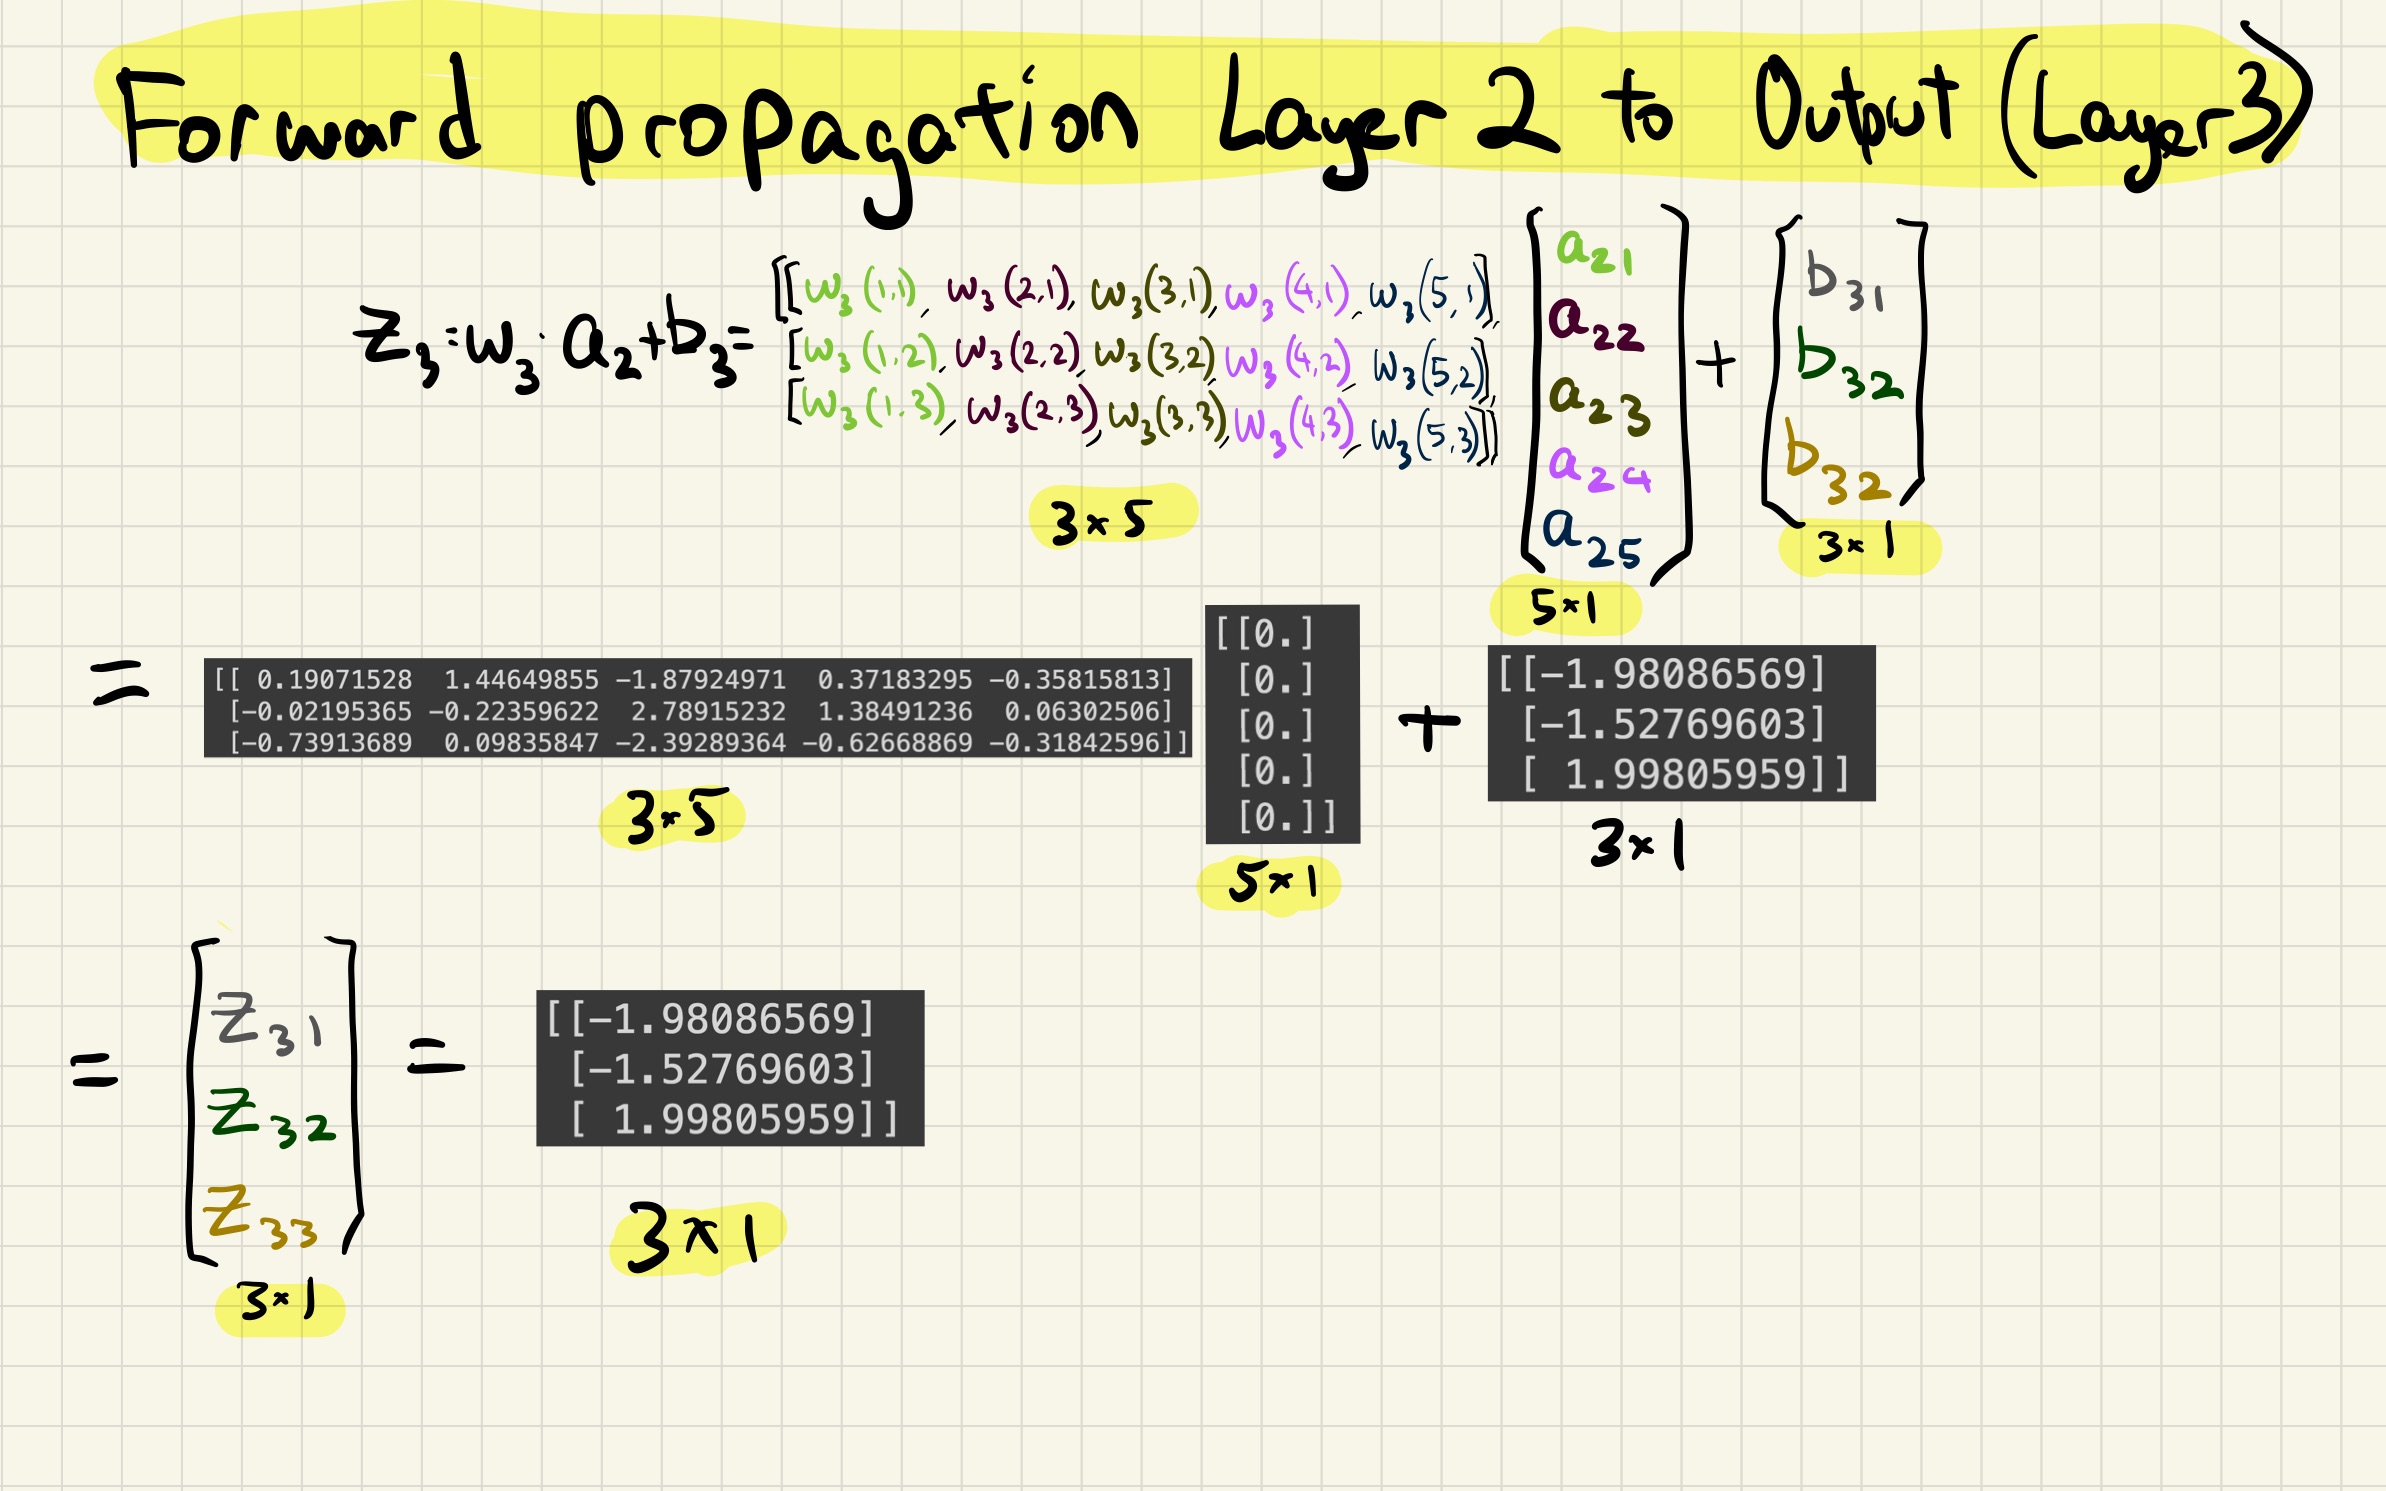 Forward propagation Layer 2 to Output (Layer 3)
z3 = w3 · a2 + b3 =
[[w3(1,1), w3(2,1), w3(3,1), w3(4,1), w3(5,1)],
[w3(1,2), w3(2,2), w3(3,2), w3(4,2), w3(5,2)],
[w3(1,3), w3(2,3), w3(3,3), w3(4,3), w3(5,3)]]
3×5
a21
a22
a23
a24
a25
5×1
+
b31
b32
b32
3×1
=
[[ 0.19071528 1.44649855 −1.87924971 0.37183295 −0.35815813]
[−0.02195365 −0.22359622 2.78915232 1.38491236 0.06302506]
[−0.73913689 0.09835847 −2.39289364 −0.62668869 −0.31842596]]
3×5
[[0.]
[0.]
[0.]
[0.]
[0.]]
5×1
+
[[−1.98086569]
[−1.52769603]
[ 1.99805959]]
3×1
=
z31
z32
z33
3×1
=
[[−1.98086569]
[−1.52769603]
[ 1.99805959]]
3×1